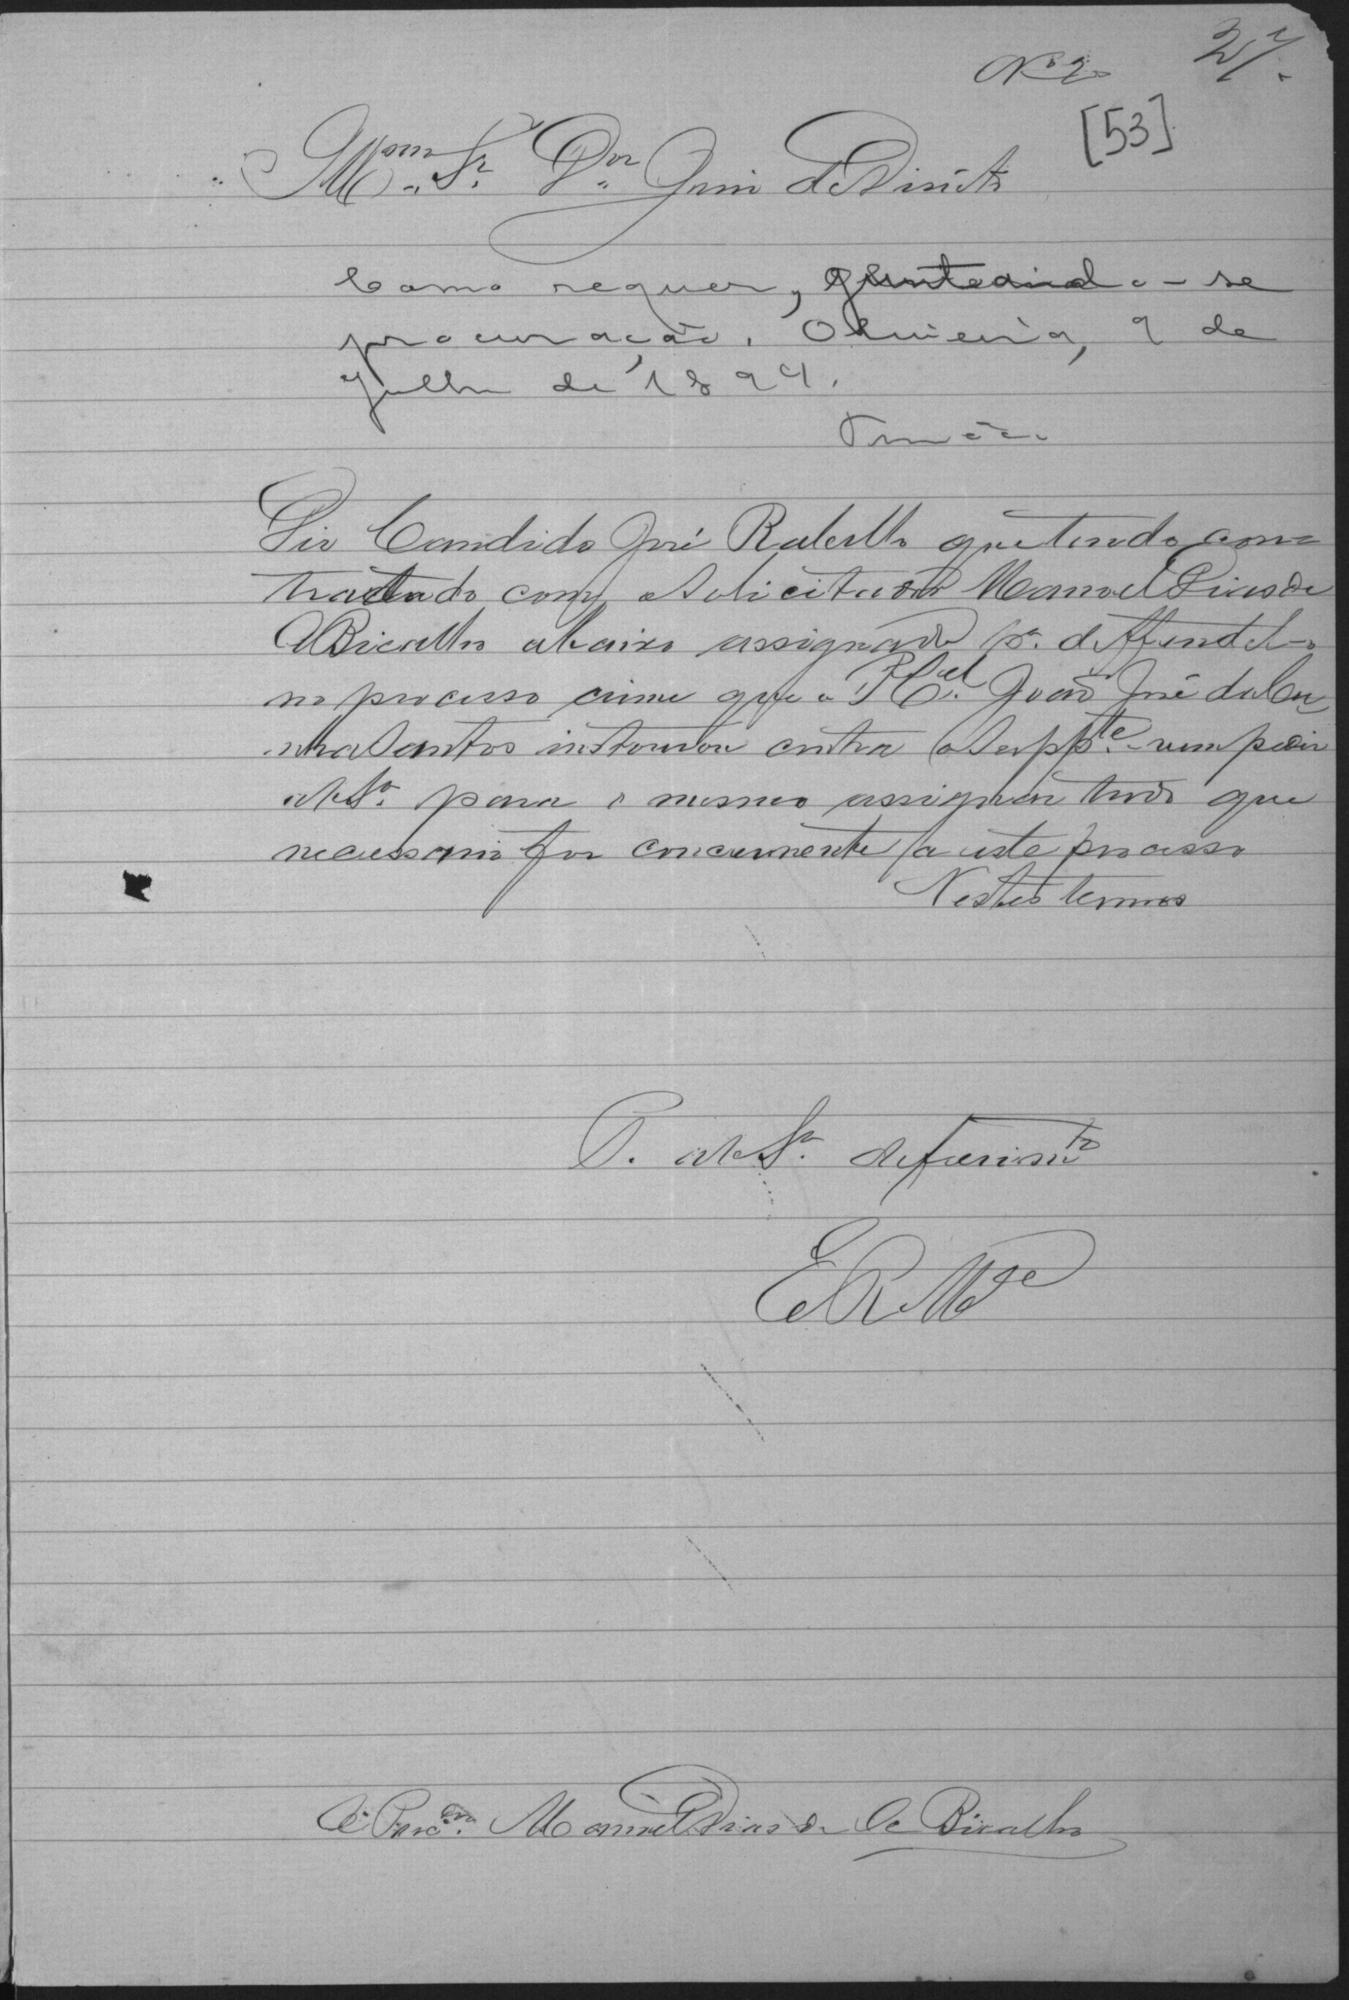 Nº 2
27.
[53]
Illmº. Sr. Dor. Juiz de Direito
Como requer, juntando-se
procuração. Oliveira, 9 de
Julho de 1894.
Diz Candido José Rabello que tendo con-
tractado com o Solicitador Manoel Dias de
Bicalho abaixo assignado pª. deffendel-o
no processo crime que o Bel. João José da Cu
nha Santos instaurou contra o Suppte. vem pedir
a V. Sª. para o mesmo assignar tudo que
necessario for concernente a este processo
Nestes termos
P. a V. Sª. deferimto
E. R. Mce
O Procor. Manoel Dias de Oª Bicalho